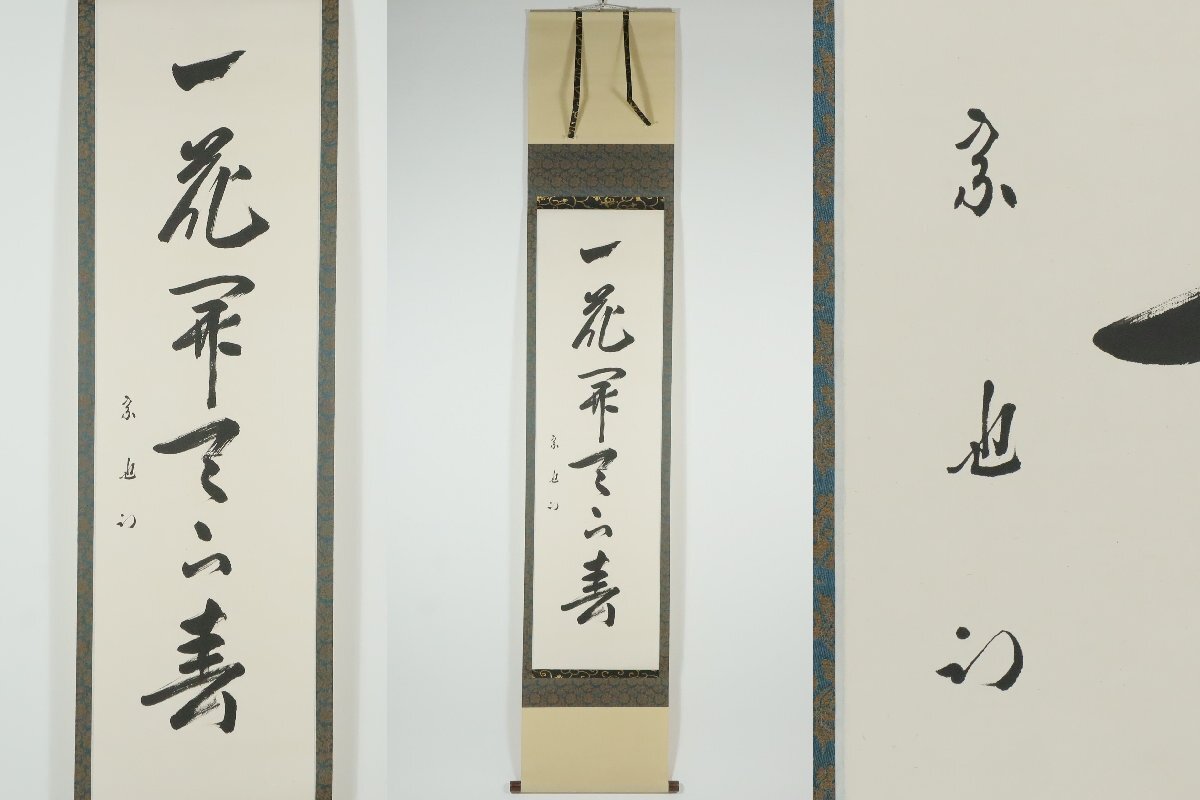 一花開天下春
宗也
一花開天下春
宗也
宗也